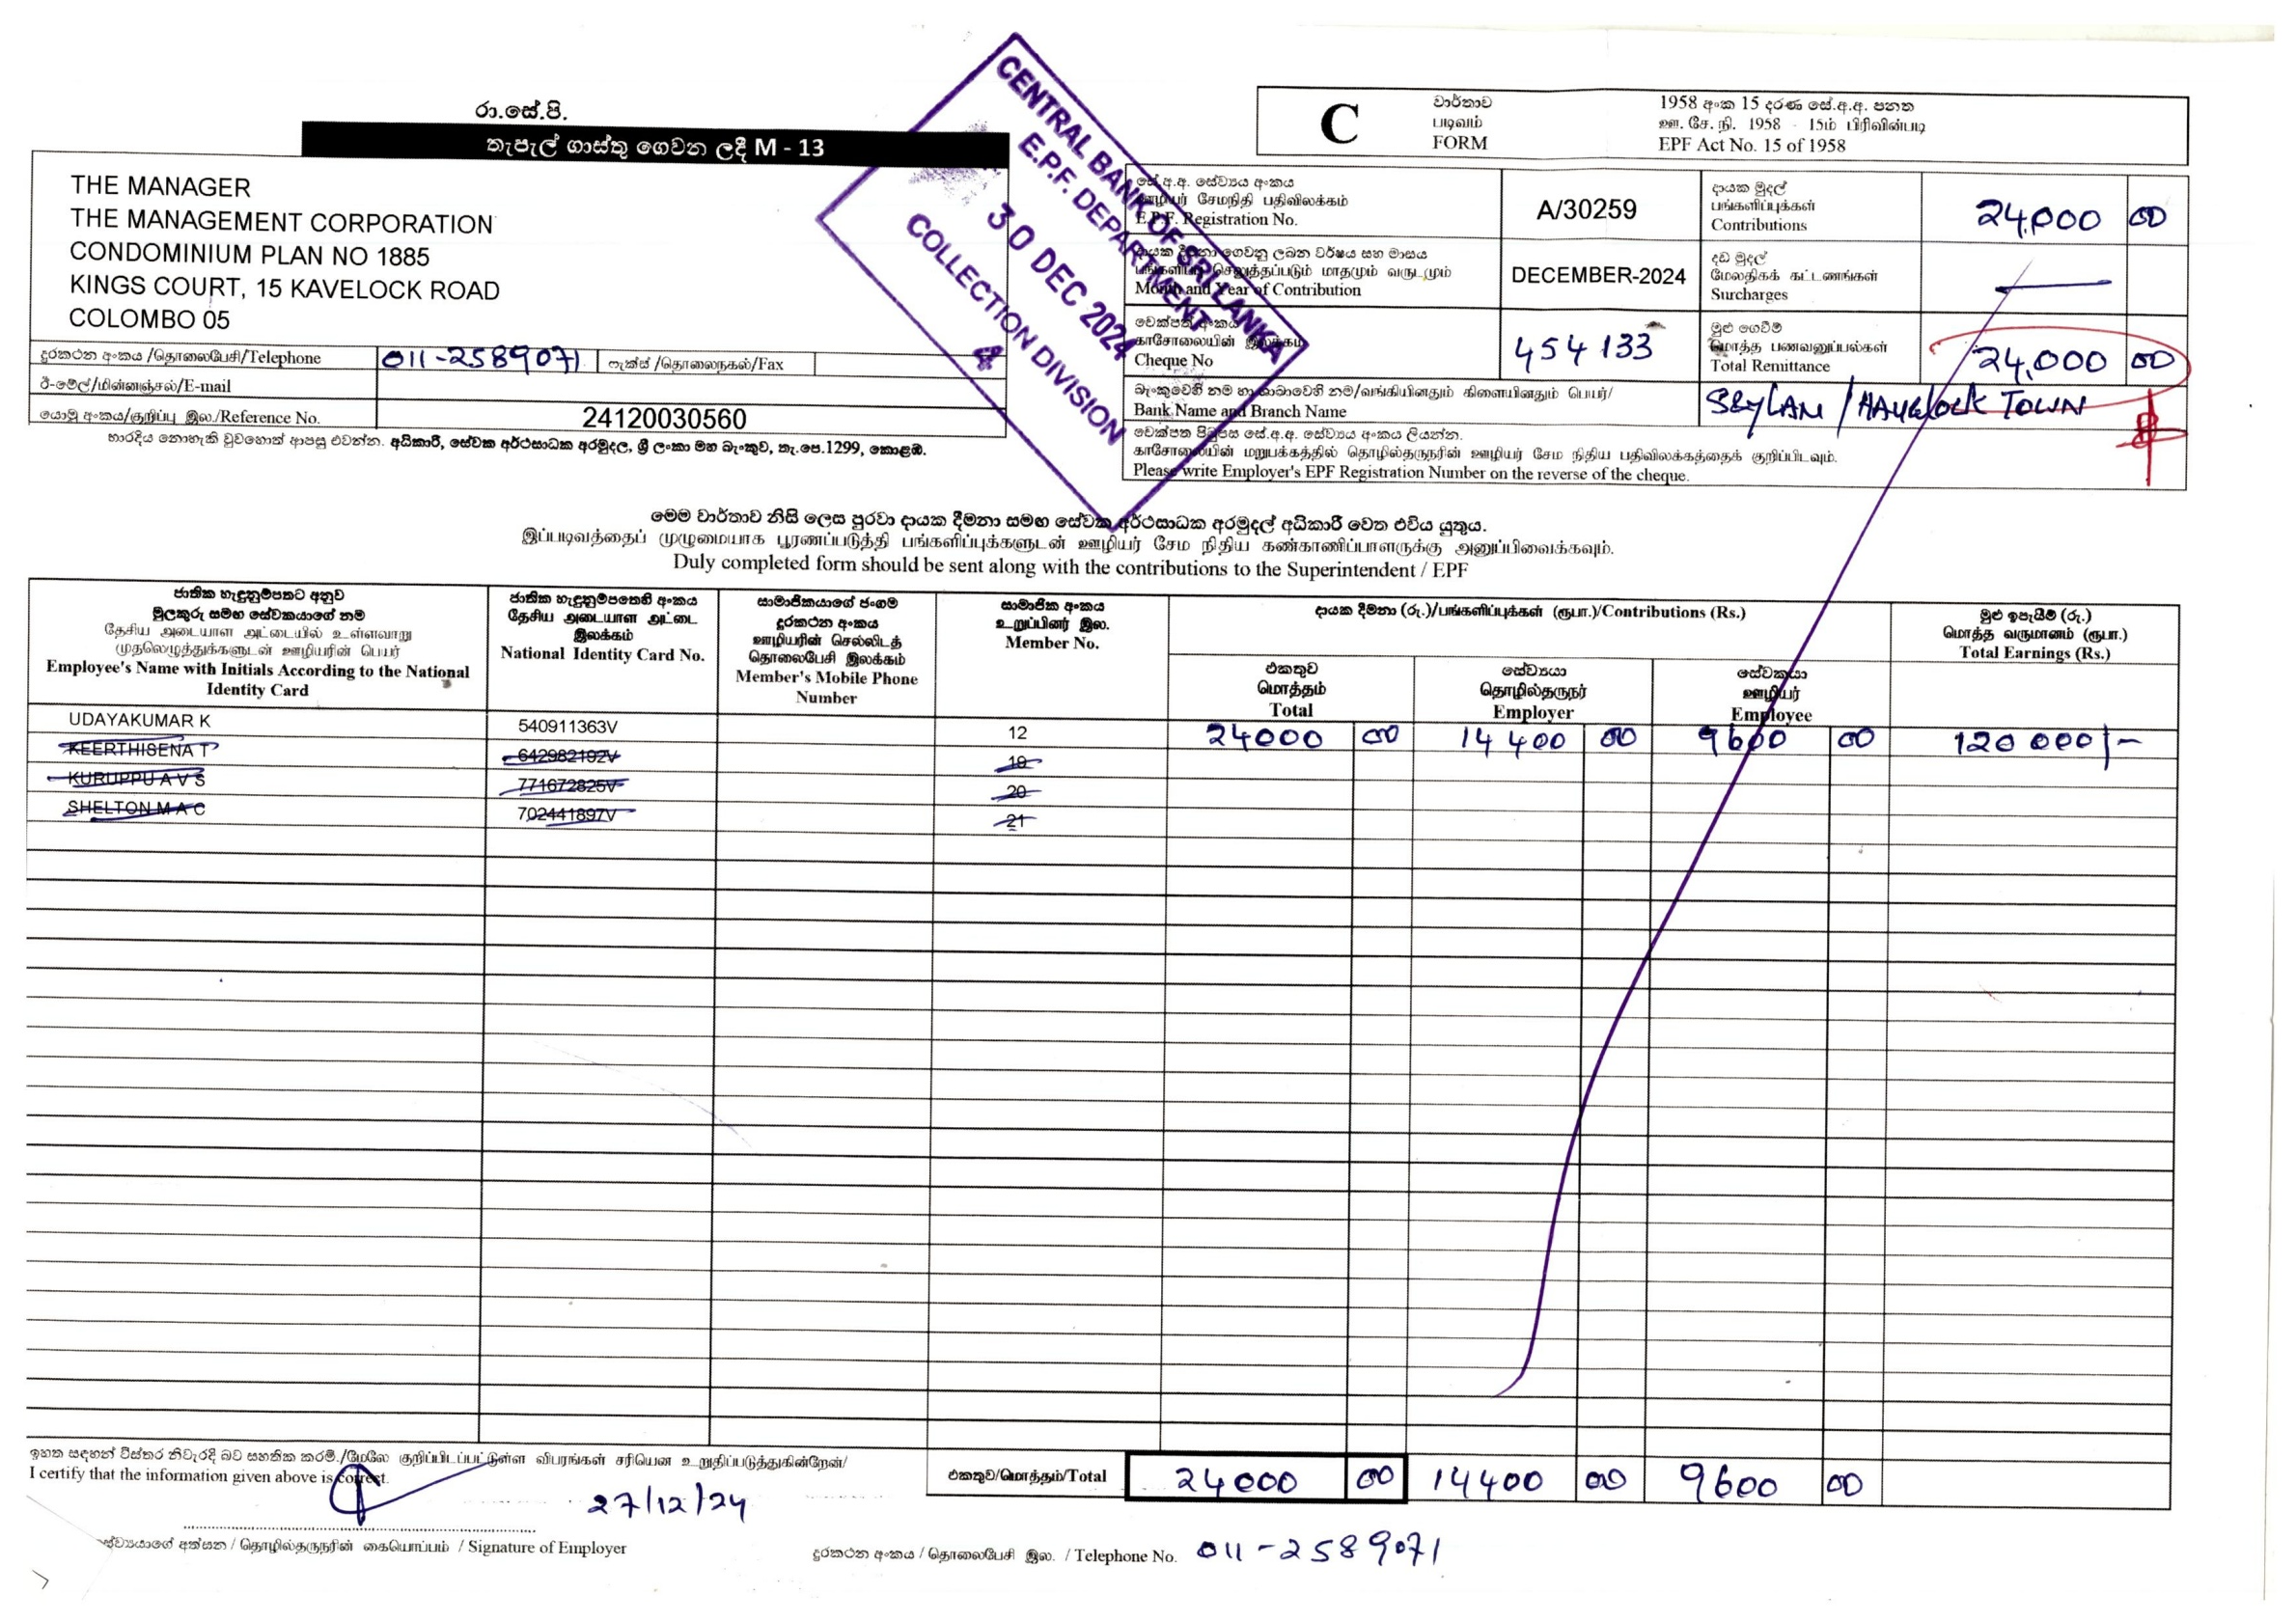 රා.සේ.පි.
තැපැල් ගාස්තු ගෙවන ලදී M - 13
THE MANAGER
THE MANAGEMENT CORPORATION
CONDOMINIUM PLAN NO 1885
KINGS COURT, 15 KAVELOCK ROAD
COLOMBO 05
දුරකථන අංකය /தொலைபேசி/Telephone 011-2589071 ෆැක්ස් /தொலைநகல்/Fax
ඊ-මේල්/மின்னஞ்சல்/E-mail
යොමු අංකය/குறிப்பு இல./Reference No. 24120030560
භාරදිය නොහැකි වුවහොත් ආපසු එවන්න. අධිකාරී, සේවක අර්ථසාධක අරමුදල, ශ්‍රී ලංකා මහ බැංකුව, තැ.පෙ.1299, කොළඹ.
CENTRAL BANK OF SRI LANKA
E.P.F. DEPARTMENT
30 DEC 2024
COLLECTION DIVISION
4
C
වාර්තාව
படிவம்
FORM
1958 අංක 15 දරණ සේ.අ.අ. පනත
ஊ. சே. நி. 1958 - 15ம் பிரிவின்படி
EPF Act No. 15 of 1958
සේ.අ.අ. සේව්‍යය අංකය
ஊழியர் சேமநிதி பதிவிலக்கம்
E.P.F. Registration No.
A/30259
දායක මුදල්
பங்களிப்புக்கள்
Contributions
24,000 00
දායක දීමනා ගෙවනු ලබන වර්ෂය සහ මාසය
பங்களிப்பு செலுத்தப்படும் மாதமும் வருடமும்
Month and Year of Contribution
DECEMBER-2024
දඩ මුදල්
மேலதிகக் கட்டணங்கள்
Surcharges
චෙක්පත් අංකය
காசோலையின் இலக்கம்
Cheque No
454133
මුළු ගෙවීම්
மொத்த பணவனுப்பல்கள்
Total Remittance
24,000 00
බැංකුවෙහි නම හා ශාඛාවෙහි නම/வங்கியினதும் கிளையினதும் பெயர்/
Bank Name and Branch Name
SEYLAN / HAVELOCK TOWN
චෙක්පත පිටුපස සේ.අ.අ. සේව්‍යය අංකය ලියන්න.
காசோலையின் மறுபக்கத்தில் தொழில்தருநரின் ஊழியர் சேம நிதிய பதிவிலக்கத்தைக் குறிப்பிடவும்.
Please write Employer's EPF Registration Number on the reverse of the cheque.
මෙම වාර්තාව නිසි ලෙස පුරවා දායක දීමනා සමඟ සේවක අර්ථසාධක අරමුදල් අධිකාරී වෙත එවිය යුතුය.
இப்படிவத்தைப் முழுமையாக பூரணப்படுத்தி பங்களிப்புக்களுடன் ஊழியர் சேம நிதிய கண்காணிப்பாளருக்கு அனுப்பிவைக்கவும்.
Duly completed form should be sent along with the contributions to the Superintendent / EPF
ජාතික හැඳුනුම්පතට අනුව
මුලකුරු සමඟ සේවකයාගේ නම
தேசிய அடையாள அட்டையில் உள்ளவாறு
முதலெழுத்துக்களுடன் ஊழியரின் பெயர்
Employee's Name with Initials According to the National
Identity Card
ජාතික හැඳුනුම්පතෙහි අංකය
தேசிய அடையாள அட்டை
இலக்கம்
National Identity Card No.
සාමාජිකයාගේ ජංගම
දුරකථන අංකය
ஊழியரின் செல்லிடத்
தொலைபேசி இலக்கம்
Member's Mobile Phone
Number
සාමාජික අංකය
உறுப்பினர் இல.
Member No.
දායක දීමනා (රු.)/பங்களிப்புக்கள் (ரூபா.)/Contributions (Rs.)
මුළු ඉපැයීම් (රු.)
மொத்த வருமானம் (ரூபா.)
Total Earnings (Rs.)
එකතුව
மொத்தம்
Total
සේව්‍යයා
தொழில்தருநர்
Employer
සේවකයා
ஊழியர்
Employee
UDAYAKUMAR K 540911363V 12 24000 00 14400 00 9600 00 120 000/-
KEERTHISENA T 642982192V 19
KURUPPU A V S 771672825V 20
SHELTON M A C 702441897V 21
ඉහත සඳහන් විස්තර නිවැරදි බව සහතික කරමි./மேலே குறிப்பிடப்பட்டுள்ள விபரங்கள் சரியென உறுதிப்படுத்துகின்றேன்/
I certify that the information given above is correct.
එකතුව/மொத்தம்/Total 24000 00 14400 00 9600 00
27/12/24
සේව්‍යයාගේ අත්සන / தொழில்தருநரின் கையொப்பம் / Signature of Employer
දුරකථන අංකය / தொலைபேசி இல. / Telephone No. 011-2589071